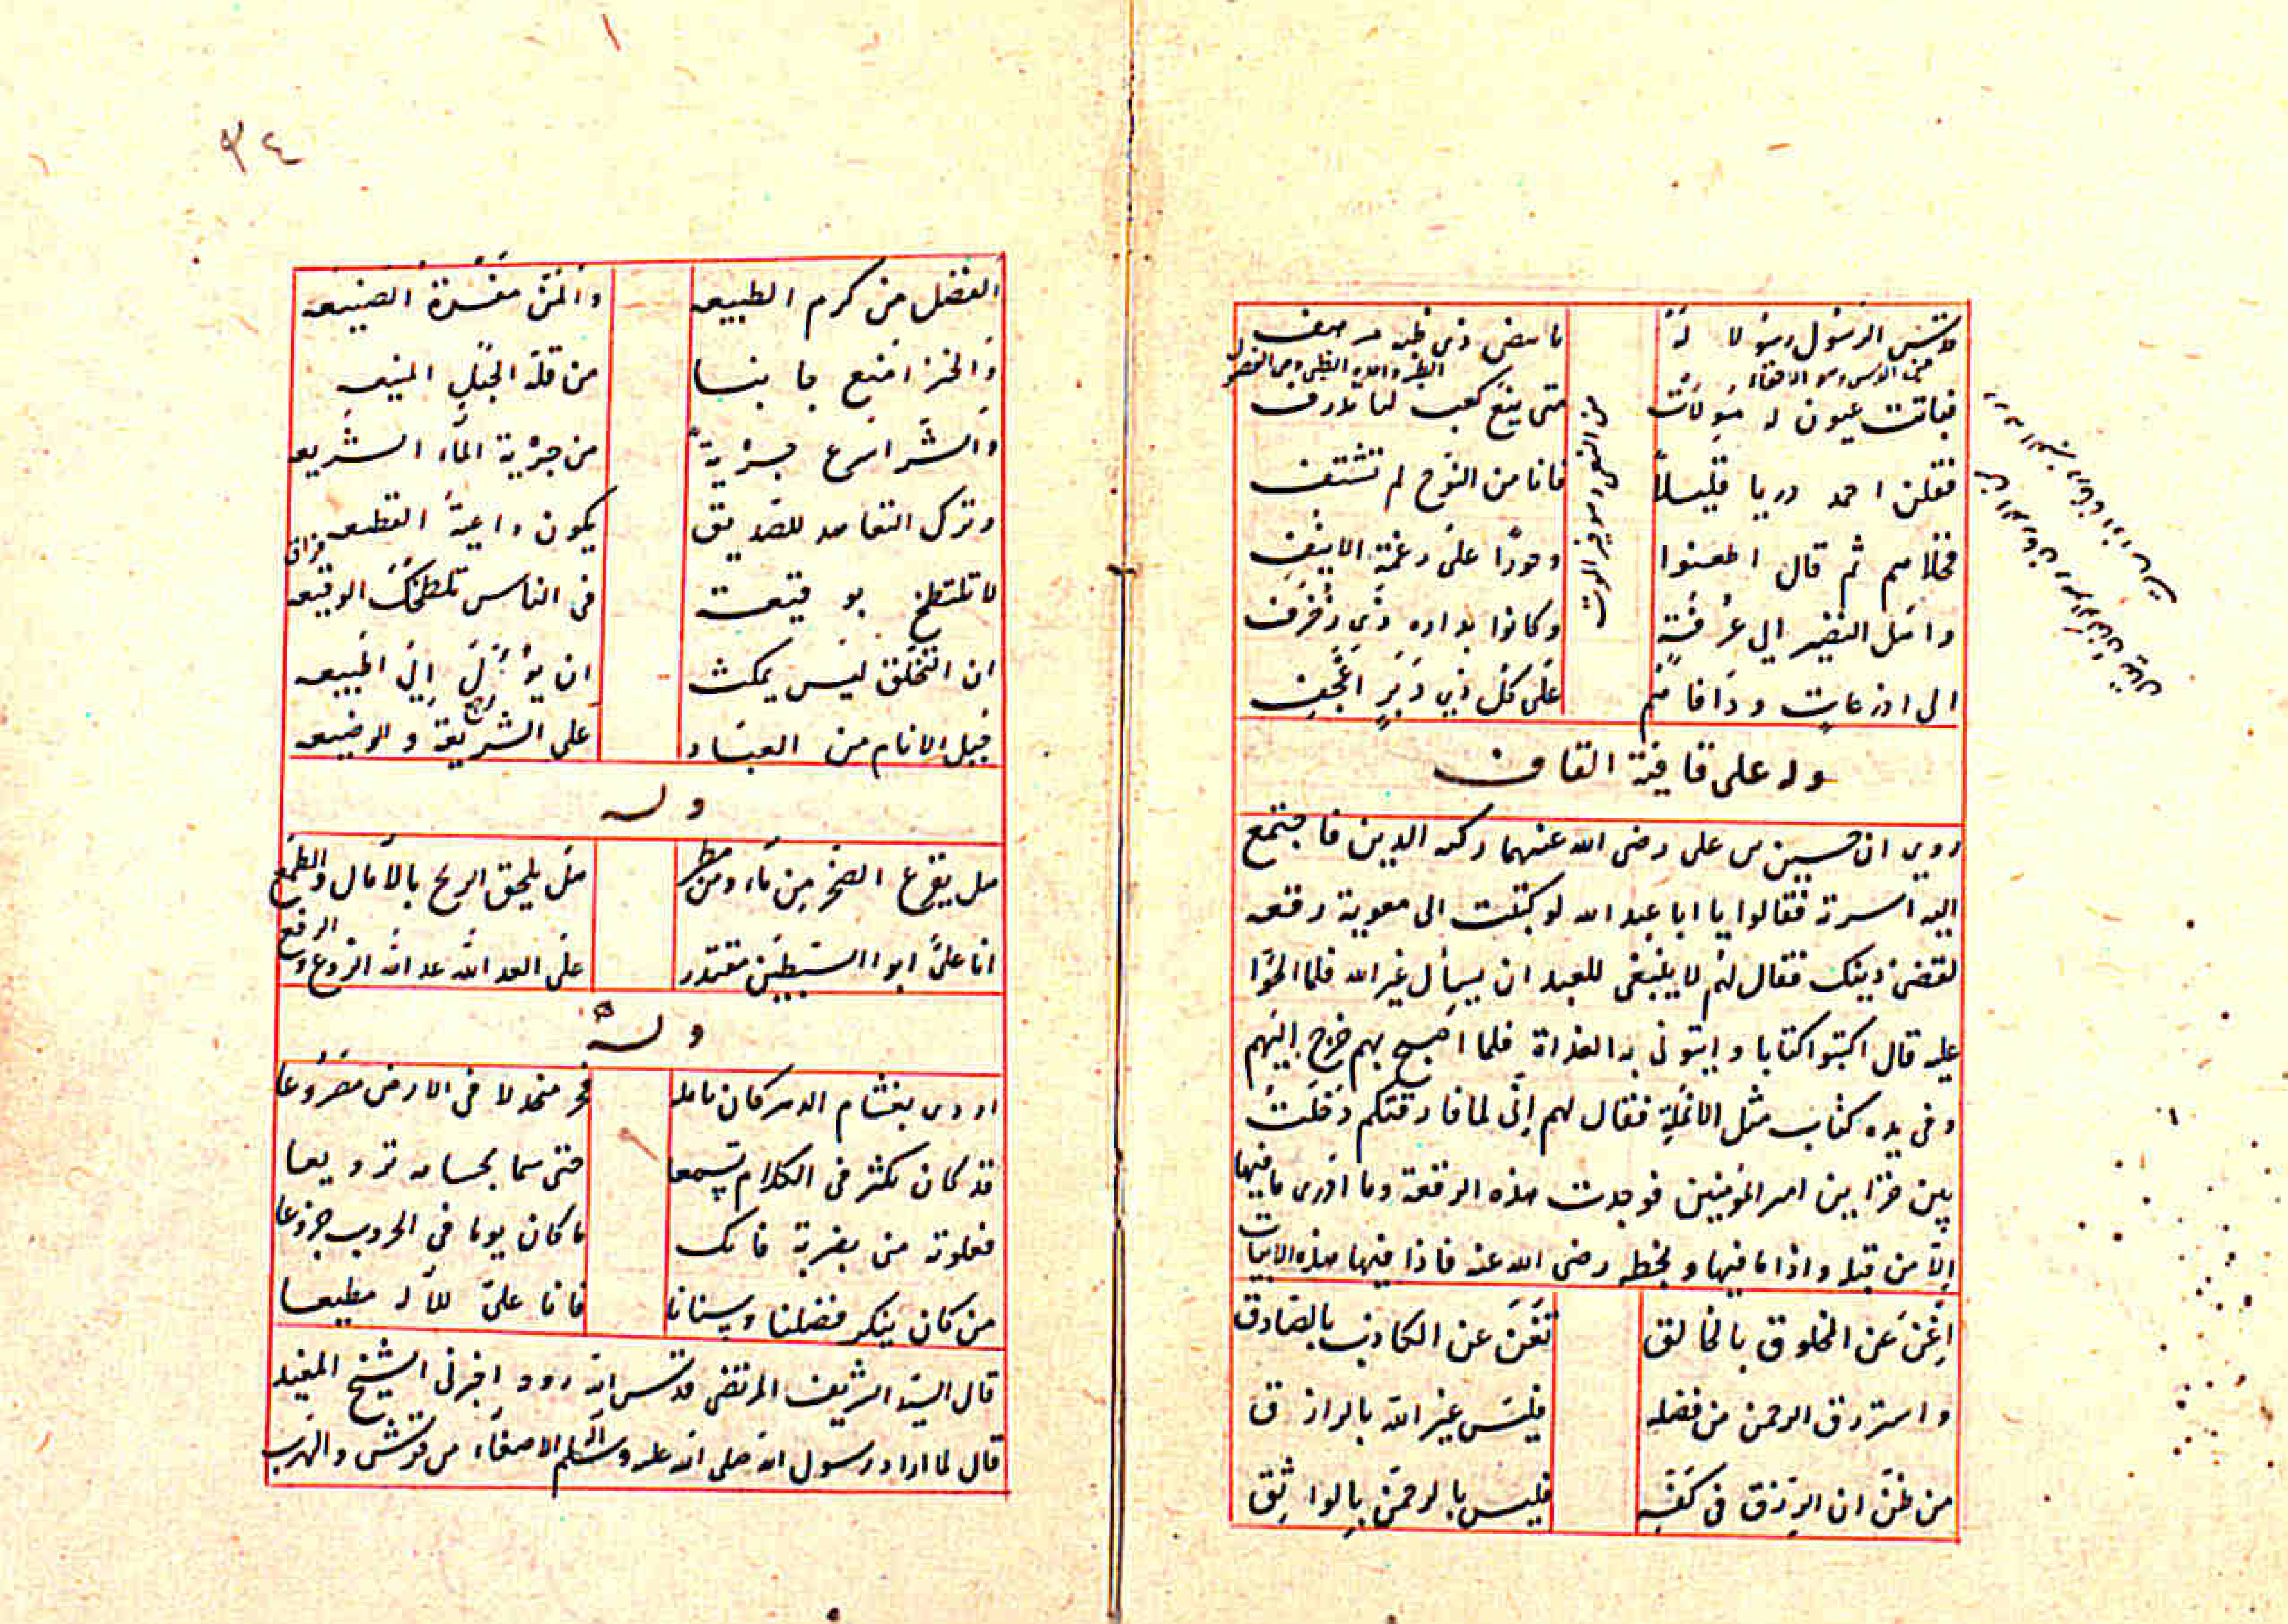 فدسّ الرسول رسولا له
بابيض ذي ظبة مرهف
فباتت عيون له مولات
متى ينع كعب لها تذرف
فقلن احمد دريا قليلاً
فانا من النوح لم تشتف
فخلاهم ثم قال اظعنوا
دحورًا على رغمة الانف
واجلى النضير الى غربة
وكانوا بداره ذي زخرف
الى اذرعات ردافا هم
على كل ذي دبر اعجف
وله على قافية القاف
روي ان حسين بن على رضى الله عنهما ركبه الدين فاجتمع
اليه اسرته فقالوا يا ابا عبد الله لو كتبت الى معوية رقعه
لقضى دينك فقال لهم لا ينبغى للعبد ان يسأل غير الله فلما الحّوا
عليه قال اكتبوا كتابا وايتونى به الغداة فلما اصبح بهم خرج اليهم
وفى يده كتاب مثل الانملة فقال لهم انّى لما فارقتكم دخلت
بين خزاين امير المؤمنين فوجدت هذه الرقعة وما ادرى ما فيها
الّا من قبله واذا ما فيها وبخطه رضى الله عنه فاذا فيها هذه الابيات
اغن عن المخلوق بالخالق
تغن عن الكاذب بالصادق
واسترزق الرحمن من فضله
فليس غير الله بالرازق
من ظنّ ان الرزق فى كفّه
فليس بالرحمن بالواثق
٣٤
الفضل من كرم الطبيعه
والمنّ مفسدة الصنيعه
والخير امنع جانبا
من قلة الجبل المنيعه
والشر اسرع جرية
من جرية الماء السريعه
وترك التعاهد للصديق
يكون داعية القطيعه
لا تلتطخ بوقيعة
فى الناس تلطخك الوقيعه
ان التخلق ليس يمكث
ان يؤل الى الطبيعه
جبل الانام من العباد
على الشريفة والوضيعه
وله
هل يقرع الصخر من ماء ومن مطر
هل يلحق الريح بالآمال والطمع
انا علىّ ابو السبطين مقتدر
على العداة غداة الروع والرفع
وله
اودى بغشام الدهر كان يامله
فخر منجدلا فى الارض مصروعا
قد كان يكثر فى الكلام تسمعا
حتى سما بحسامه ترويعا
فعلوته منى بضربة فاتك
ما كان يوما فى الحروب جزوعا
من كان ينكر فضلنا وسنانا
فانا علىّ للاله مطيعا
قال السيد الشريف المرتضى قدس الله روحه اخبرنى الشيخ المفيد
قال لما اراد رسول الله صلى الله عليه واله وسلم الاصفاء من قريش والهرب